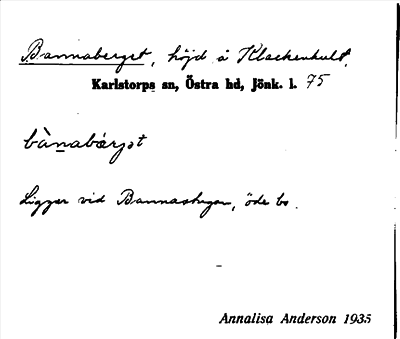 Bannaberget, höjd å Klackenhult,
Karlstorps sn, Östra hd, Jönk. l. 75
bànabärjət
Ligger vid Bannastugan, öde bs.
Annalisa Anderson 1935